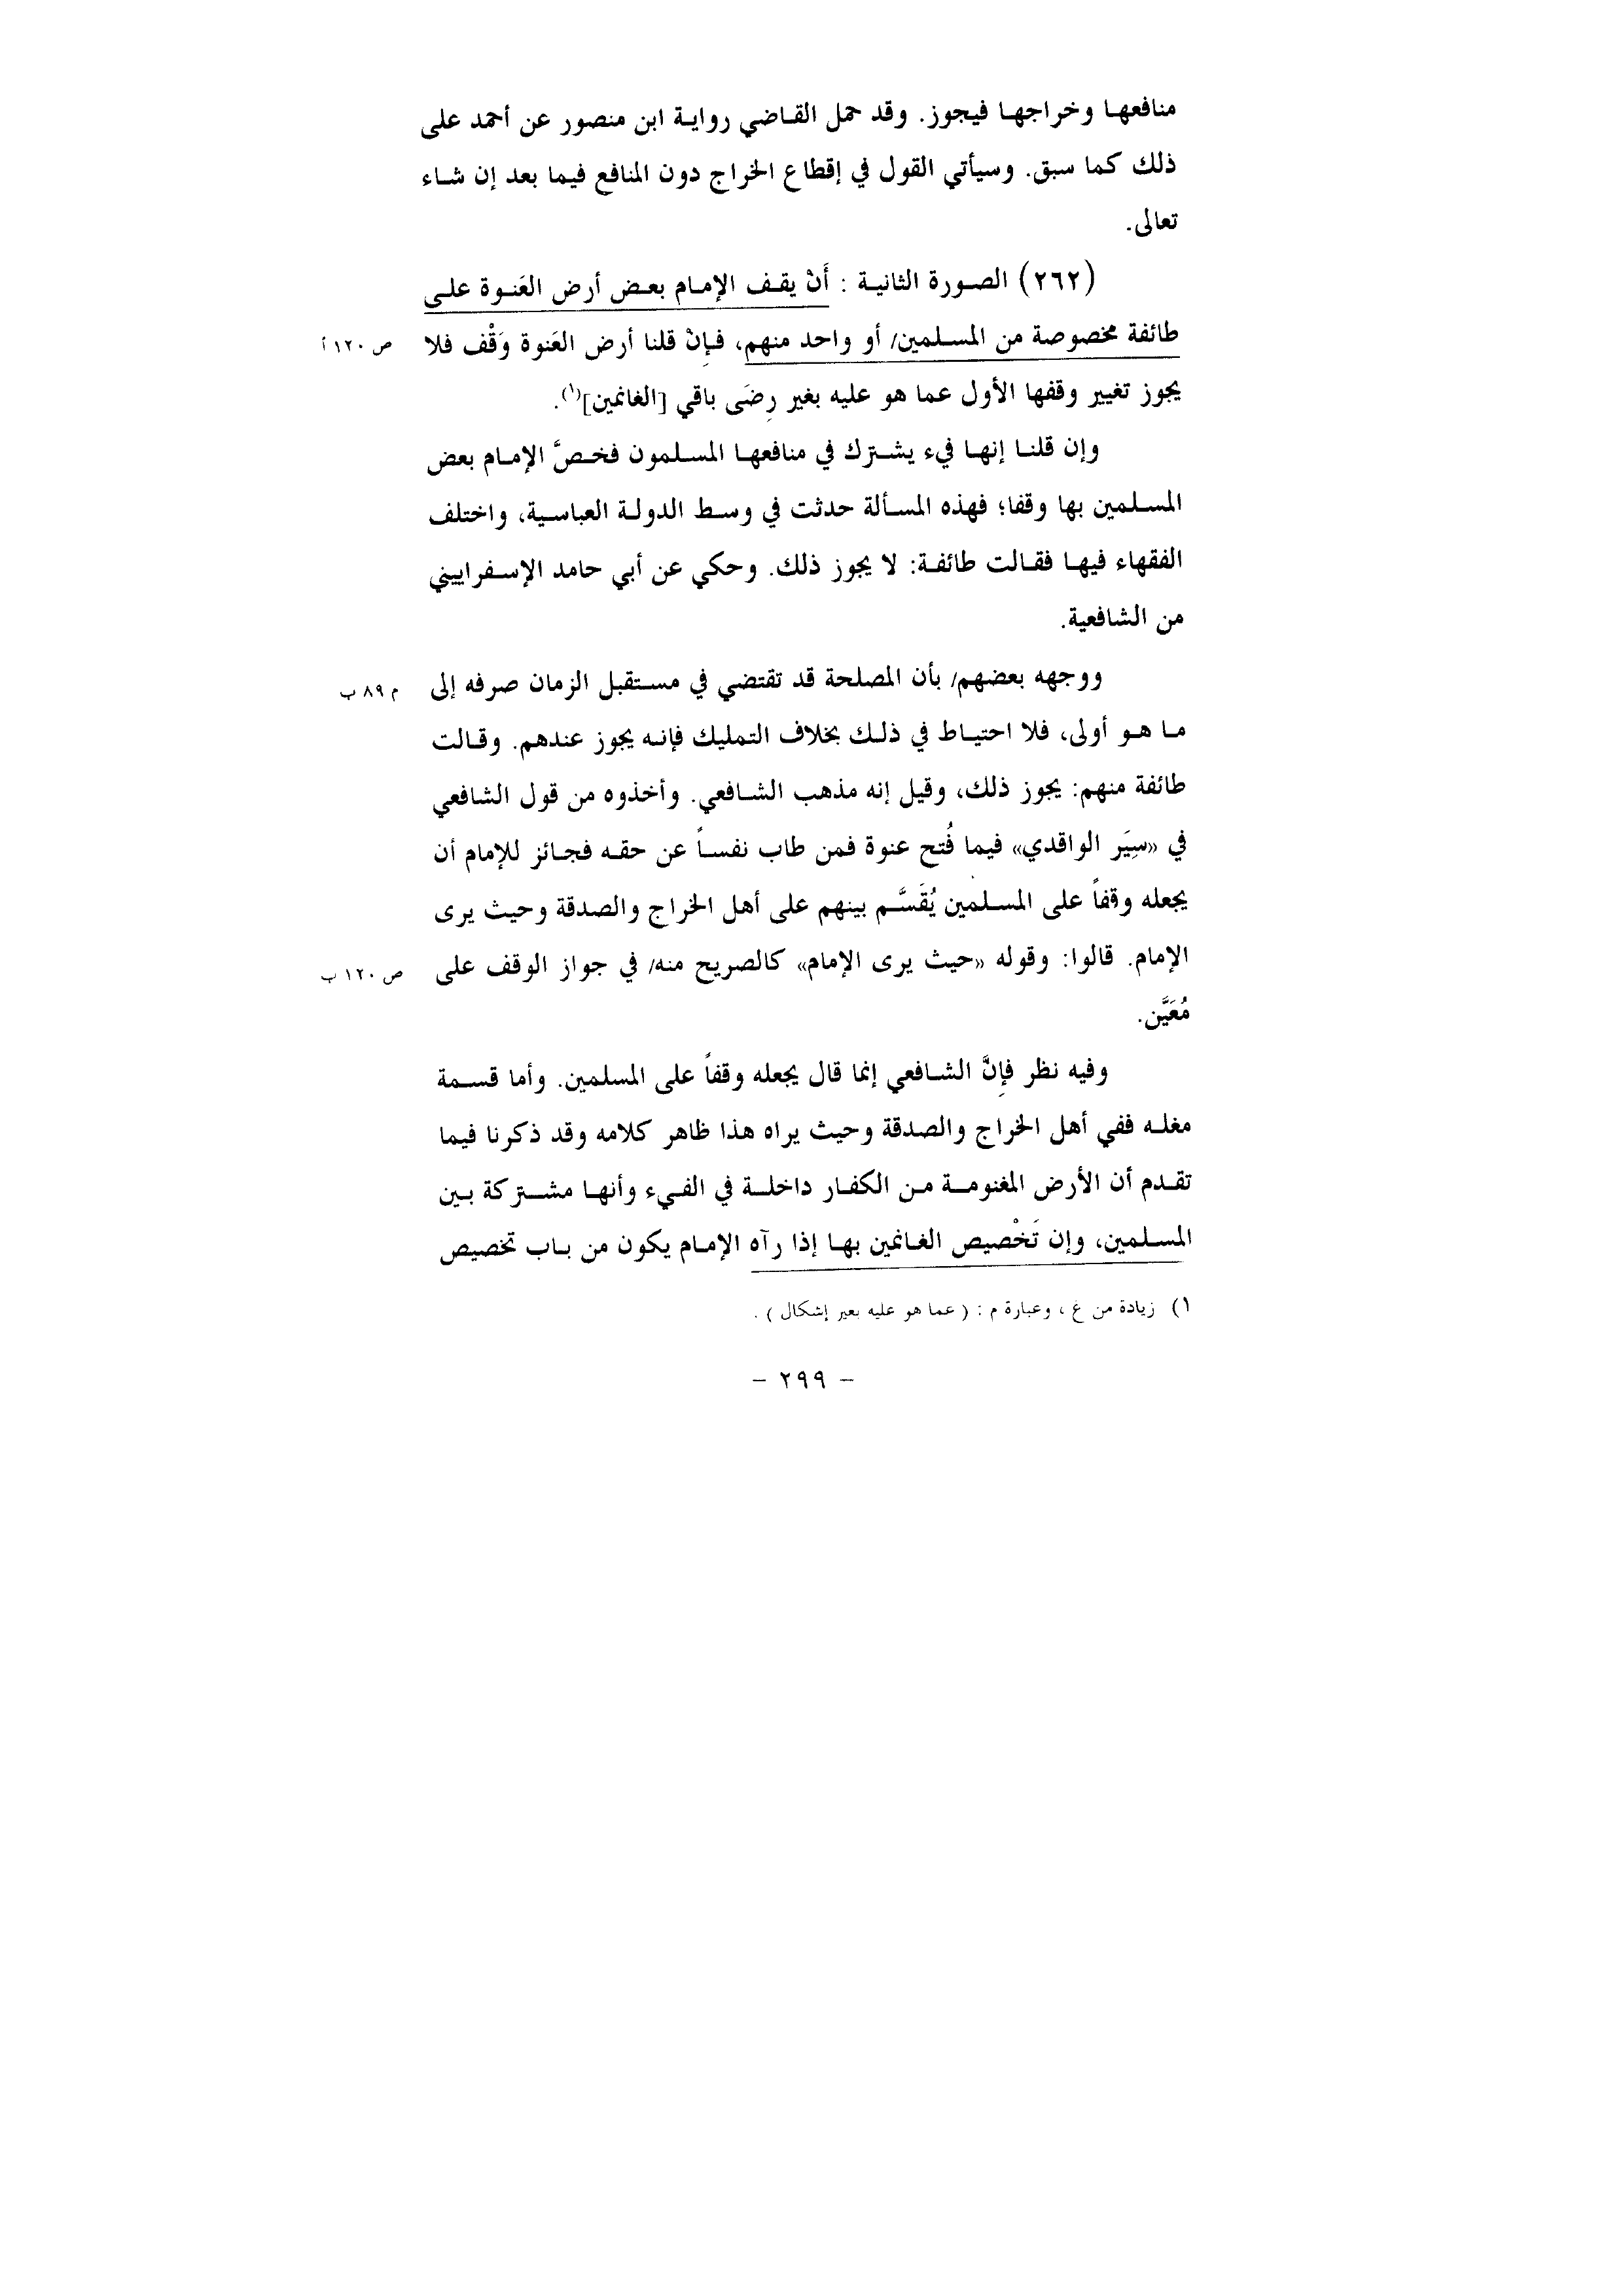 منافعها وخراجها فيجوز. وقد حمل القاضي رواية ابن منصور عن أحمد على
ذلك كما سبق. وسيأتي القول في إقطاع الخراج دون المنافع فيما بعد إن شاء
تعالى.
(٢٦٢) الصورة الثانية : أَنْ يقف الإمام بعض أرض العَنوة على
طائفة مخصوصة من المسلمين/ أو واحد منهم، فإِنْ قلنا أرض العَنوة وَقْف فلا ص ١٢٠ أ
يجوز تغيير وقفها الأول عما هو عليه بغير رِضَى باقي [الغانمين](١).
وإن قلنا إنها فيء يشترك في منافعها المسلمون فخصَّ الإمام بعض
المسلمين بها وقفا؛ فهذه المسألة حدثت في وسط الدولة العباسية، واختلف
الفقهاء فيها فقالت طائفة: لا يجوز ذلك. وحكي عن أبي حامد الإسفراييني
من الشافعية.
ووجهه بعضهم/ بأن المصلحة قد تقتضي في مستقبل الزمان صرفه إلى م ٨٩ ب
ما هو أولى، فلا احتياط في ذلك بخلاف التمليك فإنه يجوز عندهم. وقالت
طائفة منهم: يجوز ذلك، وقيل إنه مذهب الشافعي. وأخذوه من قول الشافعي
في «سِيَر الواقدي» فيما فُتح عنوة فمن طاب نفساً عن حقه فجائز للإمام أن
يجعله وقفاً على المسلمين يُقَسَّم بينهم على أهل الخراج والصدقة وحيث يرى
الإمام. قالوا: وقوله «حيث يرى الإمام» كالصريح منه/ في جواز الوقف على ص ١٢٠ ب
مُعَيَّن.
وفيه نظر فإِنَّ الشافعي إنما قال يجعله وقفاً على المسلمين. وأما قسمة
مغله ففي أهل الخراج والصدقة وحيث يراه هذا ظاهر كلامه وقد ذكرنا فيما
تقدم أن الأرض المغنومة من الكفار داخلة في الفيء وأنها مشتركة بين
المسلمين، وإن تَخْصيص الغانمين بها إذا رآه الإمام يكون من باب تخصيص
١) زيادة من غ ، وعبارة م : ( عما هو عليه بغير إشكال ) .
- ٢٩٩ -